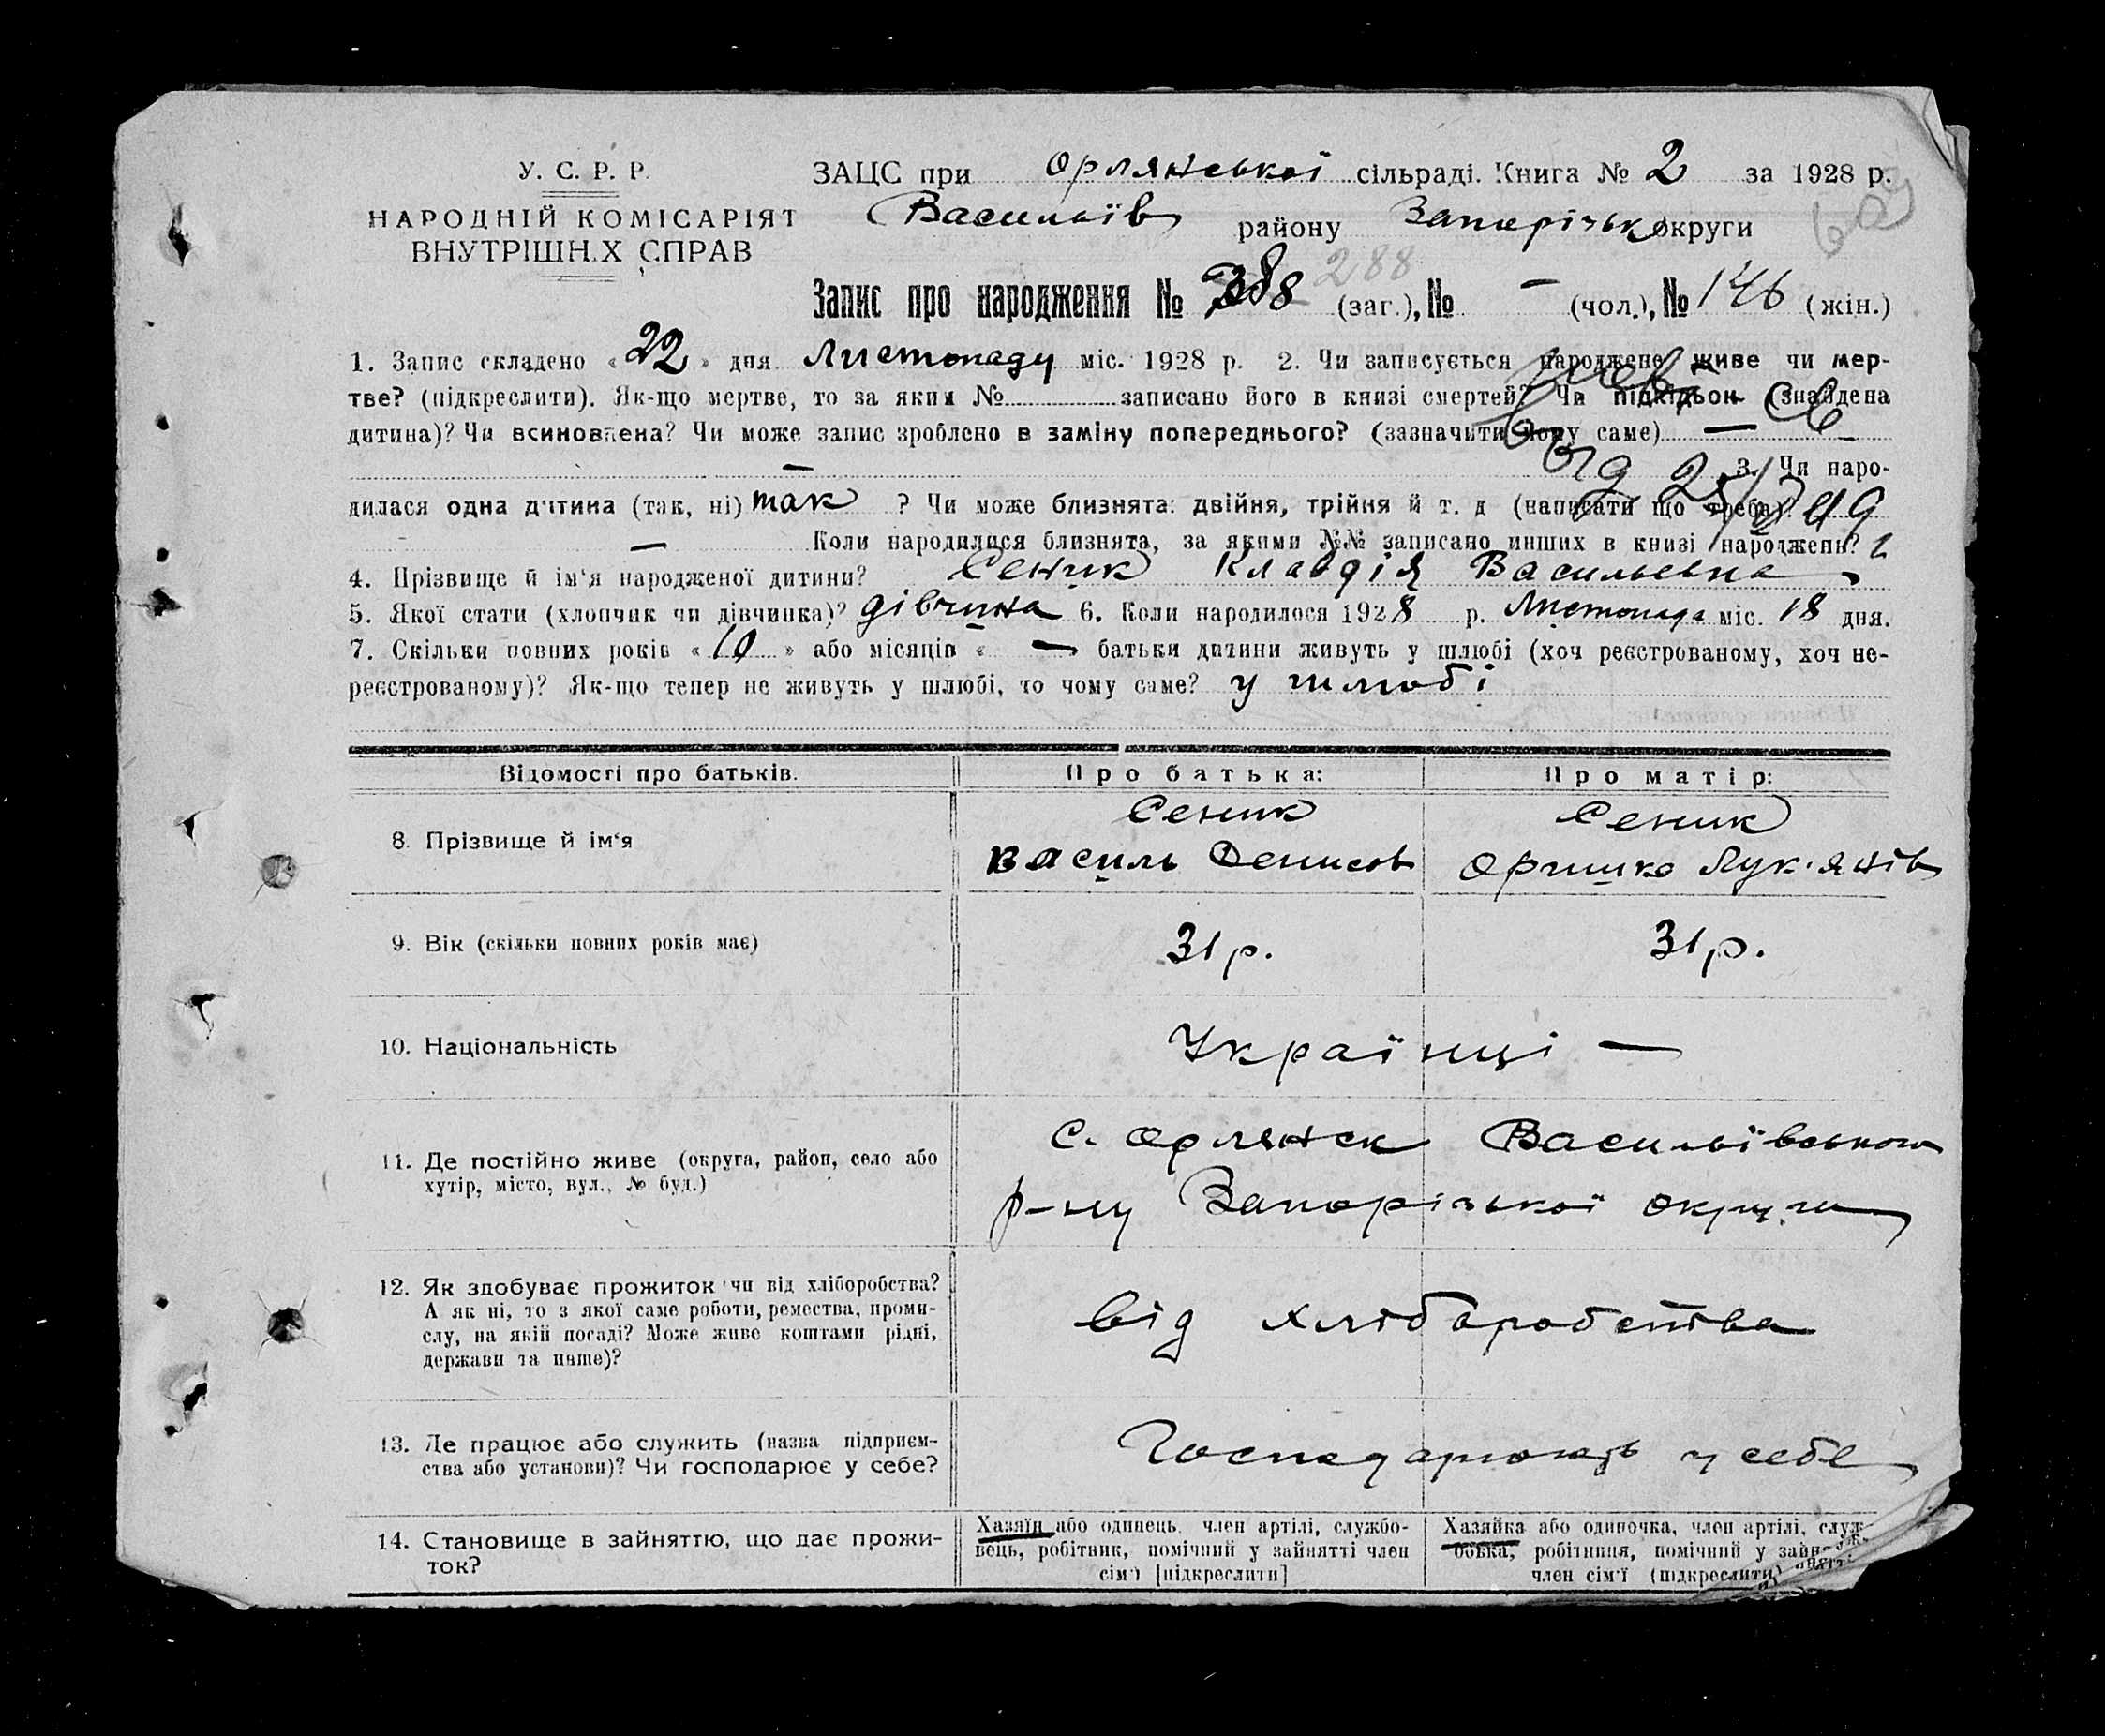 У. С. Р. Р.
НАРОДНІЙ КОМІСАРІЯТ
ВНУТРІШН.Х СПРАВ
ЗАЦС при Орлянської сільраді. Книга № 2 за 1928 р.
Васильїв району Запорізьк округи
288
Запис про народження № 388 (заг.), № — (чол.), № 146 (жін.)
1. Запис складено «22» дня Листопаду міс. 1928 р. 2. Чи записується народжене живе чи мер-
тве? (підкреслити). Як-що мертве, то за яким № записано його в книзі смертей? Чи підкідьок (знайдена
дитина)? Чи всиновлена? Чи може запис зроблено в заміну попереднього? (зазначити чому саме) —
— 3. Чи наро-
дилася одна дитина (так, ні) так ? Чи може близнята: двійня, трійня й т. д (написати що треба).
— Коли народилися близнята, за якими №№ записано инших в книзі народжень?
4. Прізвище й ім'я народженої дитини? Сеник Клавдія Васильевна
5. Якої стати (хлопчик чи дівчинка)? дівчина 6. Коли народилося 1928 р. Листопада міс. 18 дня.
7. Скільки повних років «10» або місяців « — батьки дитини живуть у шлюбі (хоч реєстрованому, хоч не-
реєстрованому)? Як-що тепер не живуть у шлюбі, то чому саме? у шлюбі
Відомості про батьків. Про батька: Про матір:
8. Прізвище й ім'я Сеник Сеник
Василь Денисов Оришка Лук'янів
9. Вік (скільки повних років має) 31 р. 31 р.
10. Національність Українці —
11. Де постійно живе (округа, район, село або
хутір, місто, вул., № буд.)
с. Орлянск Васильівського
р-ну Запорізької округи
12. Як здобуває прожиток чи від хліборобства?
А як ні, то з якої саме роботи, ремества, проми-
слу, на якій посаді? Може живе коштами рідні,
держави та инше)?
від хліборобства
13. Де працює або служить (назва підприєм-
ства або установи)? Чи господарює у себе?
Господарюють у себе
14. Становище в зайняттю, що дає прожи-
ток?
Хазяїн або одинець, член артілі, службо-
вець, робітник, помічний у зайнятті член
сім'ї [підкреслити]
Хазяйка або одиночка, член артілі, служ-
бовка, робітниця, помічний у зайнятті
член сім'ї (підкреслити)